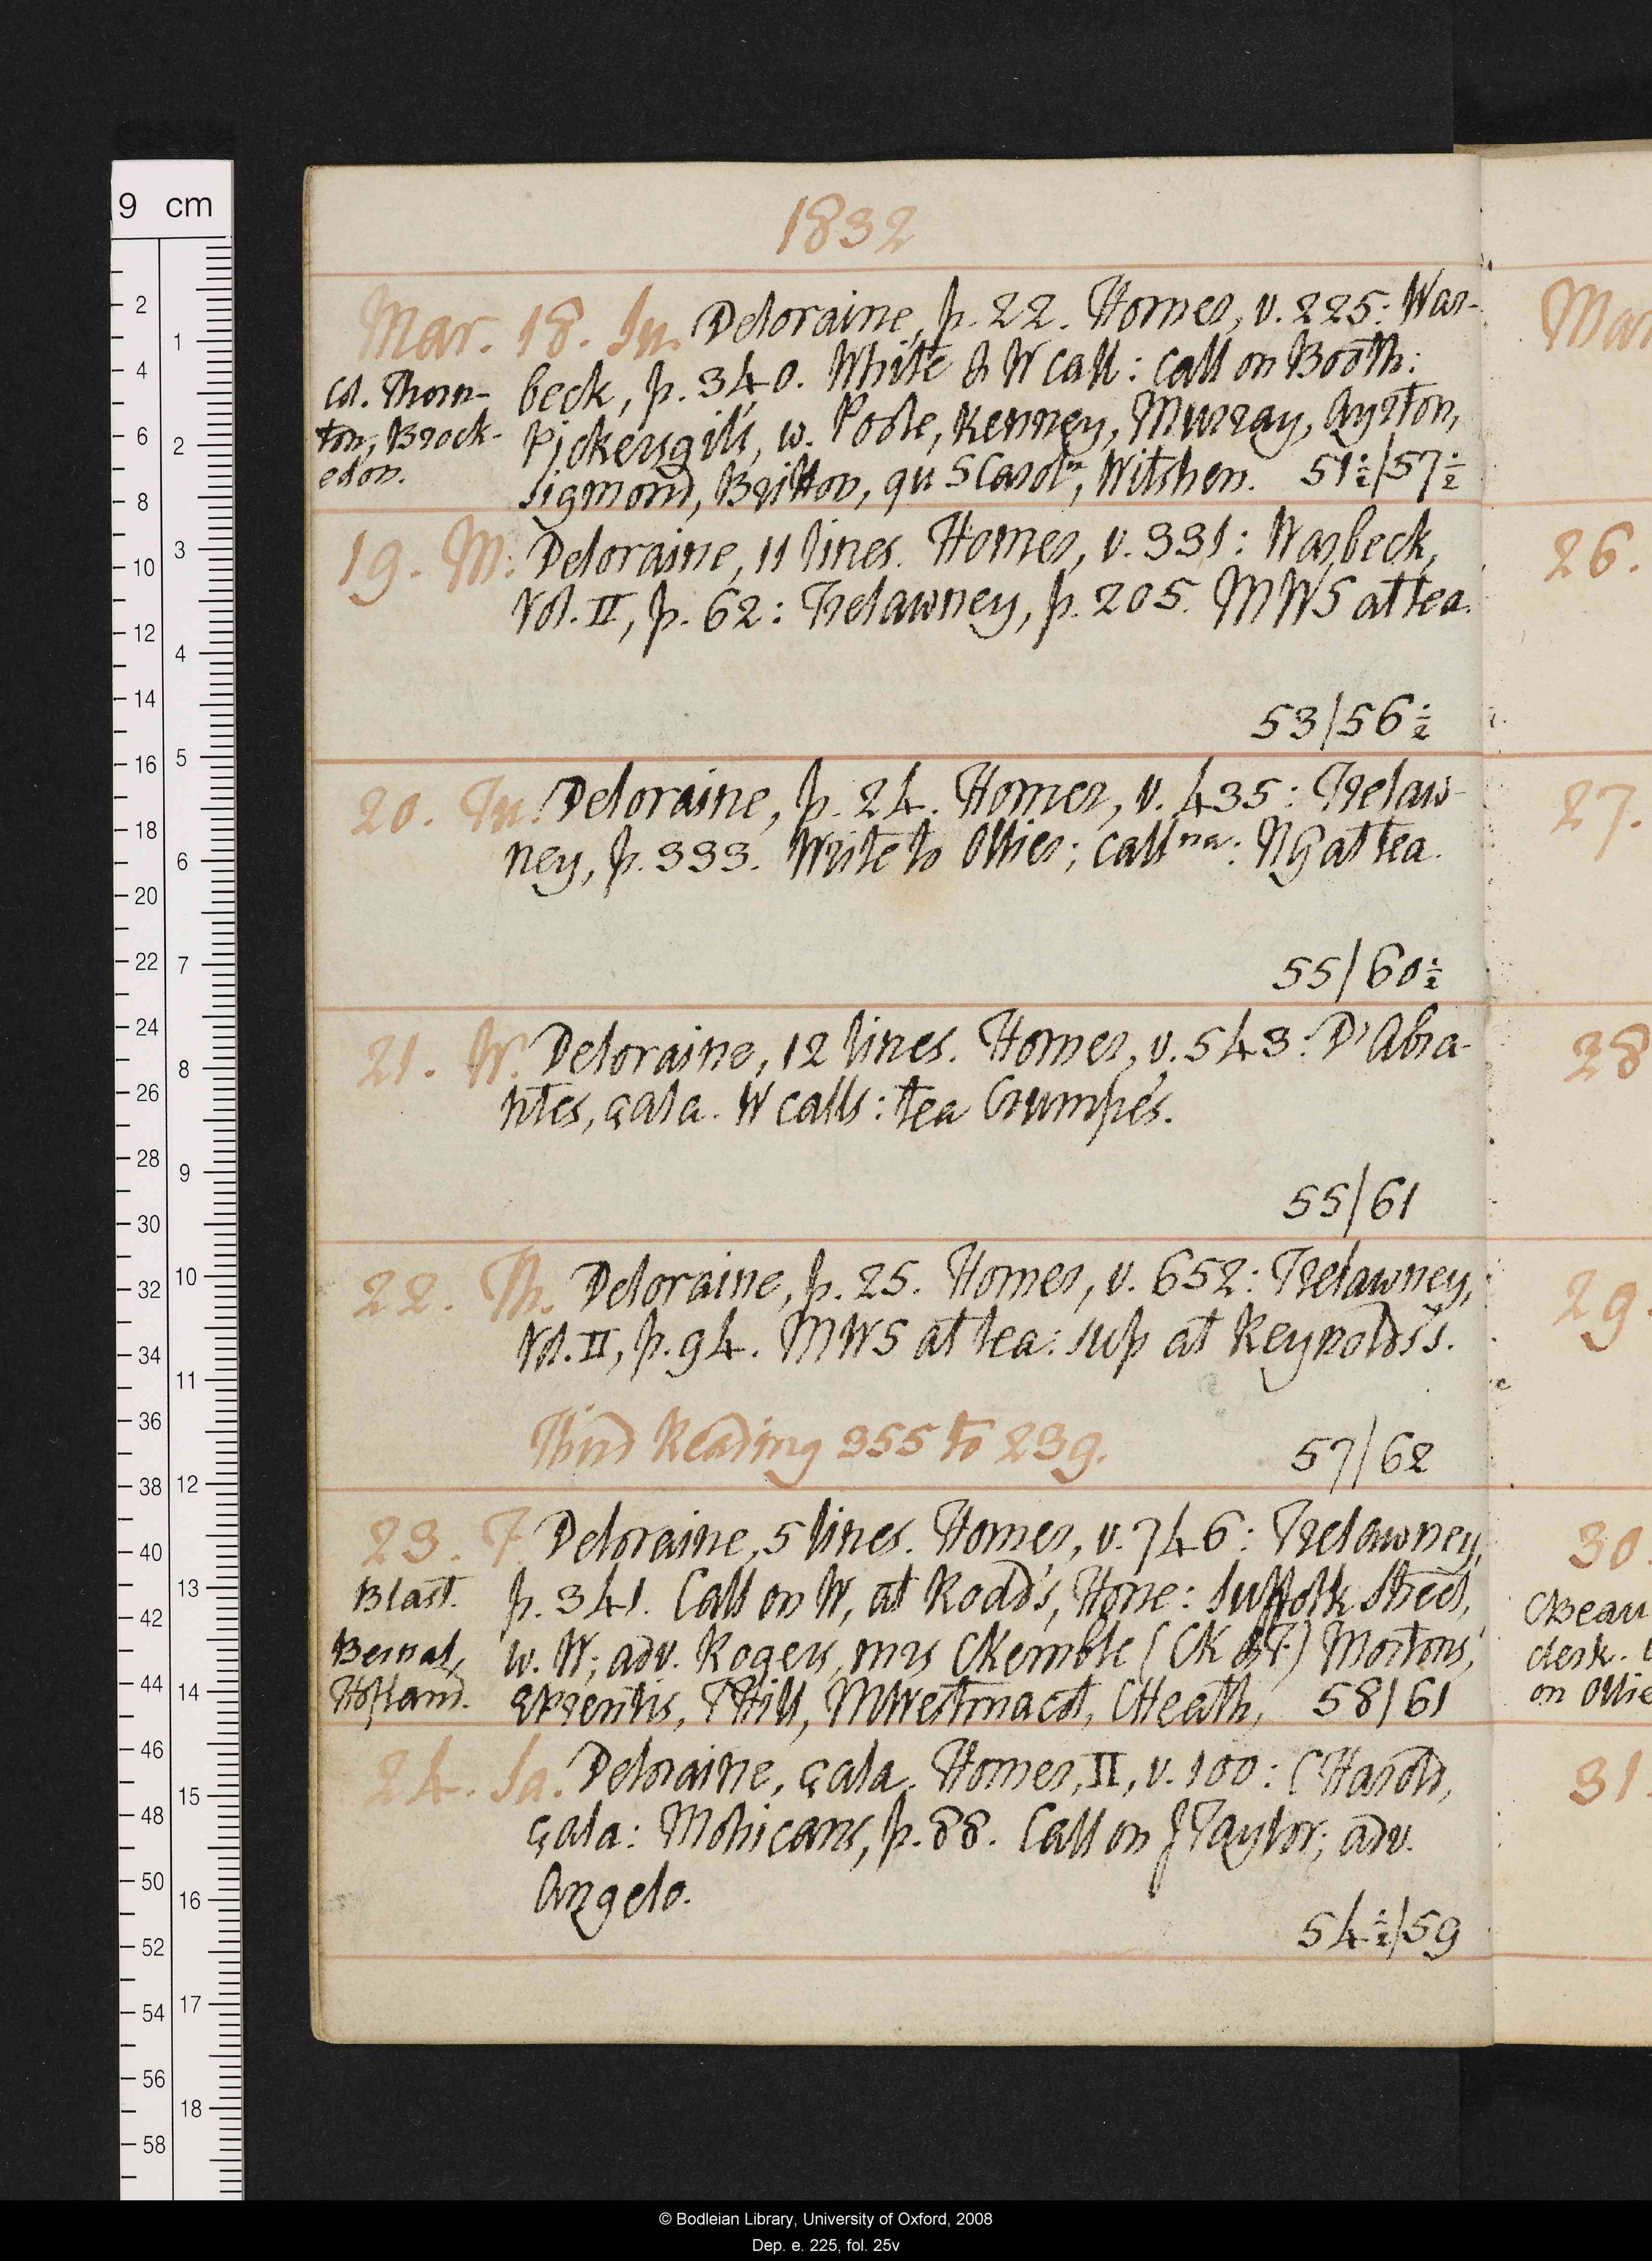 1832
Mar. 18. Su. Deloraine, p. 22. Homer, v. 225: War-
beck, p. 340. White & W call: call on Booth:
Col. Thorn-
ton, Brock-
edon.
Pickersgill's, w. Poole, Kenney, Murray, Ayrton,
Sigmond, Britton, qu S Carolⁿ, Witshen. 51½/57½
19. M. Deloraine, 11 lines. Homer, v. 331: Warbeck,
Vol. II, p. 62: Trelawney, p. 205. MWS at tea.
53/56½
20. Tu. Deloraine, p. 24. Homer, v. 435: Trelaw-
ney, p. 333. Write to Ollier; call na: NG at tea.
55/60½
21. W. Deloraine, 12 lines. Homer, v. 543: D'Abra-
ntes, çala. W calls: tea Crumpe's.
55/61
22. Th. Deloraine, p. 25. Homer, v. 652: Trelawney,
Vol. II, p. 94. MWS at tea: sup at Reynolds's.
Third Reading 355 to 239. 57/62
23. F. Deloraine, 5 lines. Homer, v. 746: Trelawney,
Blast.
p. 341. Call on W, at Roadd's, Hone: Suffolk Street,
Bernal,
Hofland.
w. W; adv. Rogers, mrs CKemble (CK & F) Mortons,
EPrentis, THill, MWestmacot, CHeath, 58/61
24. Sa. Deloraine, çala. Homer, II, v. 100: CHarold,
çala: Mohicans, p. 88. Call on JTaylor; adv.
Angelo.
54½/59
Mar
26.
27.
28
29.
30.
CBeau
clerk.
on Ollie
31.
9 cm
© Bodleian Library, University of Oxford, 2008
Dep. e. 225, fol. 25v